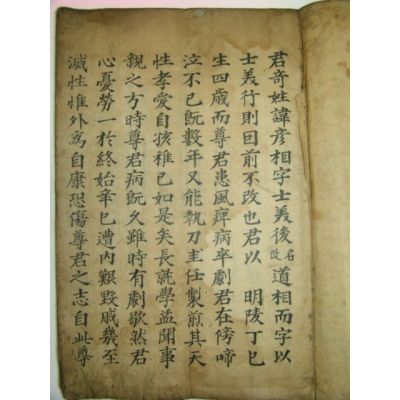 君奇姓諱彦相字士義後改名道相而字以
士義行則因前不改也君以 明陵丁巳
生四歲而尊君患風痺病卒劇君在傍啼
泣不已旣數年又能執刀圭任製煎其天
性孝愛自孩稚已如是矣長就學益聞事
親之方時尊君病旣久雖時有劇歇然君
心憂勞一於終始辛巳遭内艱毀戚幾至
滅性惟外爲自康恐傷尊君之志自此尊